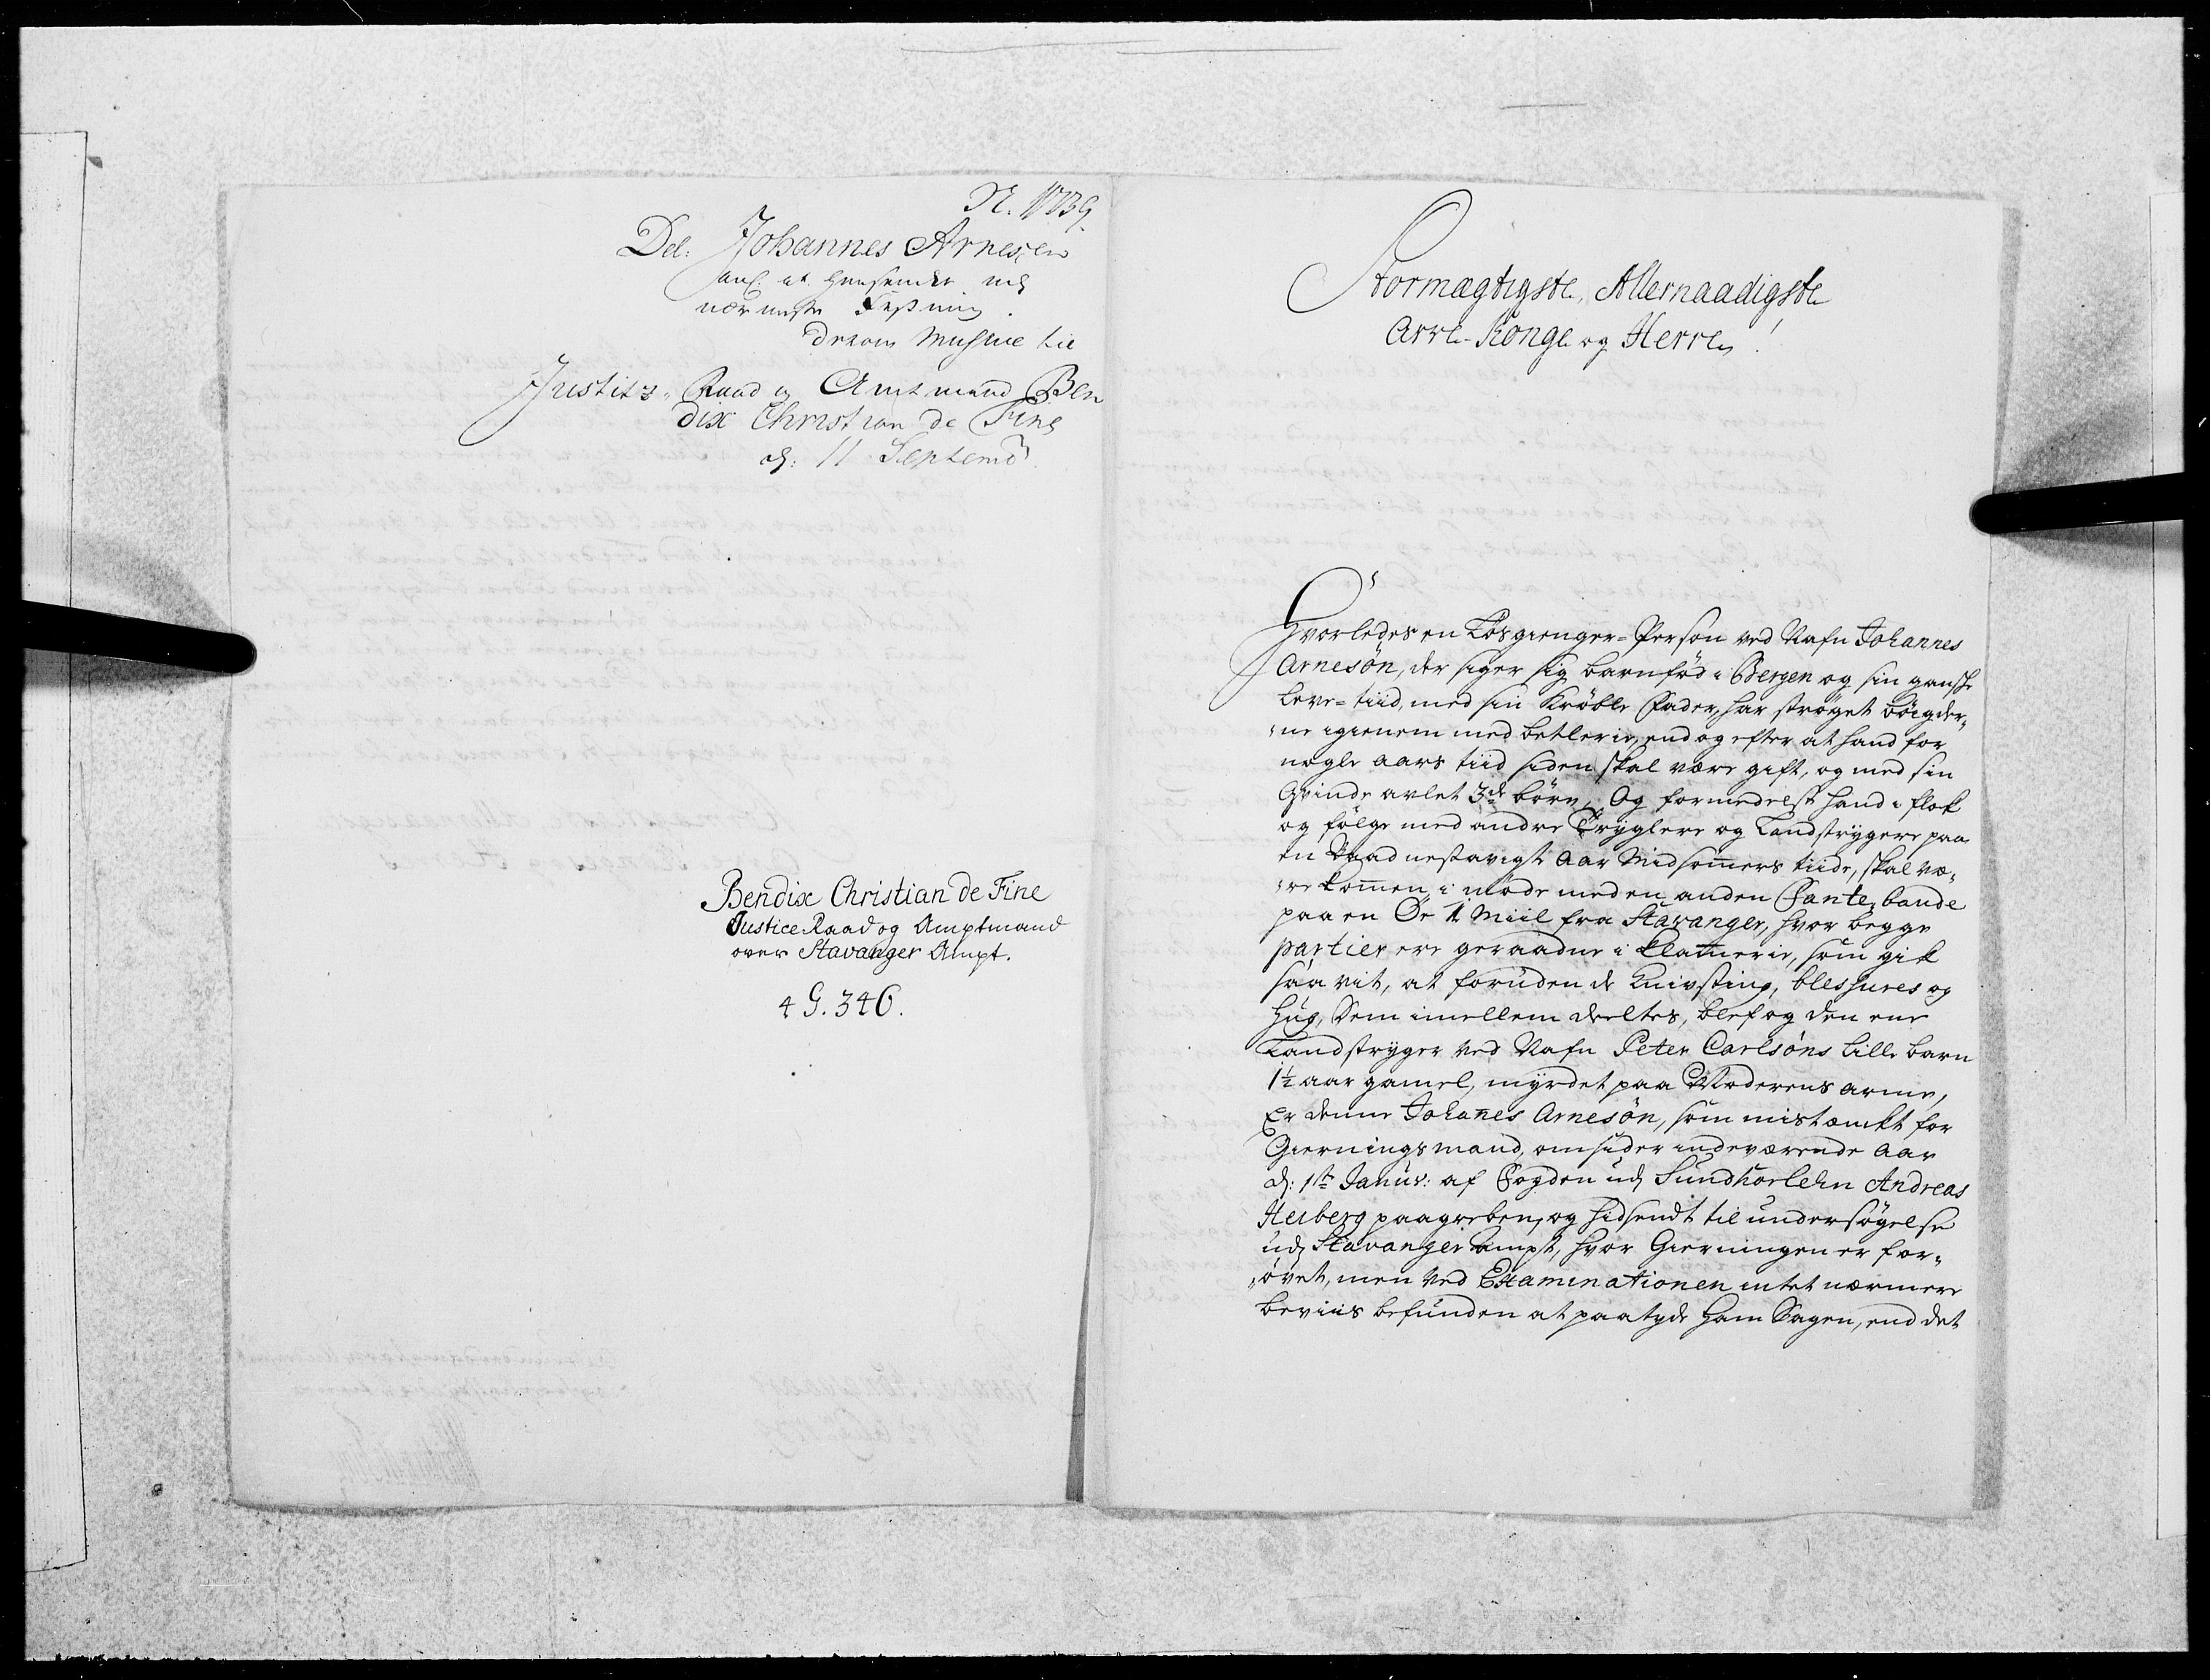 N. 1739.
Del: Johannes Arnesen
anl. at hensendes udj
nærmeste Festning.
Derom Missive til
Justitz-Raad og Amtmand Ben
dix Christian de Fine
d: 11 Septemb.
Bendix Christian de Fine
Justice Raad og Amptmand
over Stavanger Ampt.
4 G. 346.
Stormægtigste, Allernaadigste
Arve-Konge og Herre!
Hvorledes en Løsgienger-Person ved Nafn Johannes
Arnesøn, der siger sig barnfød i Bergen og sin gansche
leve-tiid, med sin Krøble Fader, har strøget böigder,,
,,ne igienem med betlerie, end og efter at hand for
nogle aars tiid siden skal være gift, og med sin
Qvinde avlet 3de börn, Og formedelst hand i flok
og følge med andre Tryglere og Landstrygere paa
en Baad nestavigt aar Midsom̄ers tiide, skal væ,,
,,re kom̄en i møde med en anden Fante-bande
paa en Öe 1 Miil fra Stavanger, hvor begge
partier ere geraadne i klam̄erie, som gik
saa vit, at foruden de Knivsting, blessures og
Hug, dem imellem deeltes, blef og den ene
Landstryger ved Nafn Peter Carlsöns lille barn
1½ aar gamel, myrdet paa Moderens arme,
Er denne Johan̄es Arnesøn, som mistænkt for
Gierningsmand, omsider indeværende aar
d: 1te Januv: af Fogden udj Sundhorlehn Andreas
Heiberg paagreben, og hidsendt til undersøgelse
udj Stavanger ampt, hvor Gierningen er for,,
,,øvet, men ved Examinationen intet nærmere
beviis befunden at paatyde ham Sagen, end det